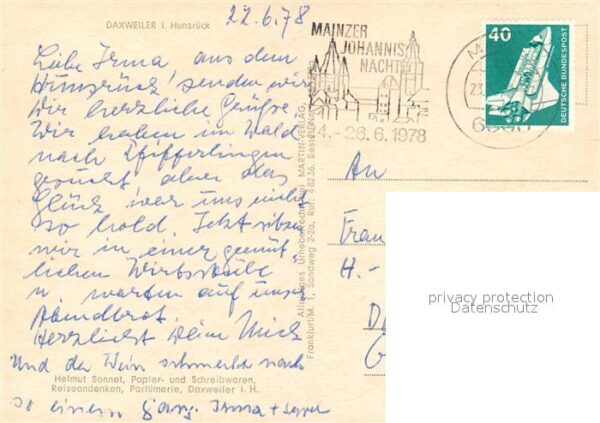 DAXWEILER i. Hunsrück
22.6.78
Liebe Irma aus dem
Hunsrück senden wir
Dir herzliche Grüße.
Wir haben im Wald
nach Pfifferlingen
gesucht aber das
Glück war uns nicht
so hold. Jetzt sitzen
wir in einer gemüt,
lichen Wirtsstube
u. warten auf unser
Abendbrot.
Herzlichst Deine
Und der Wein schmeckt nach
Helmut Sonnet, Papier- und Schreibwaren,
Reiseandenken, Parfümerie, Daxweiler i. H.
so einem Gang. Irma +
Alleiniges Urheberrecht bei MARTIN-VERLAG,
Frankfurt/M. 1, Sandweg 2-2a, Ruf: 48236.
MAINZER
JOHANNIS
NACHT
24.-26.6.1978
M
23.
40
DEUTSCHE BUNDESPOST
An
Frau
H.-
D
G
privacy protection
Datenschutz